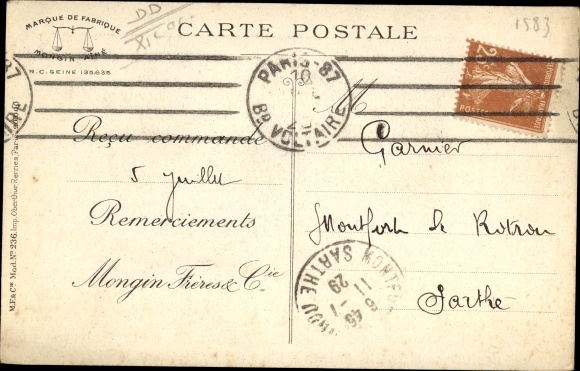 MARQUE DE FABRIQUE
MONGIN AINÉ
R.C. SEINE 135.835
DD
CARTE POSTALE
1583
PARIS-87
10
Bd VOLTAIRE
25
POSTES
M
Reçu commande
5 juillet
Remerciements
Mongin Frères & Cie
Garnier
Montfort le Rotrou
Sarthe
SARTHE
11
29
M.E&Cie Mod. No 236. Imp. Oberthur, Rennes, Paris